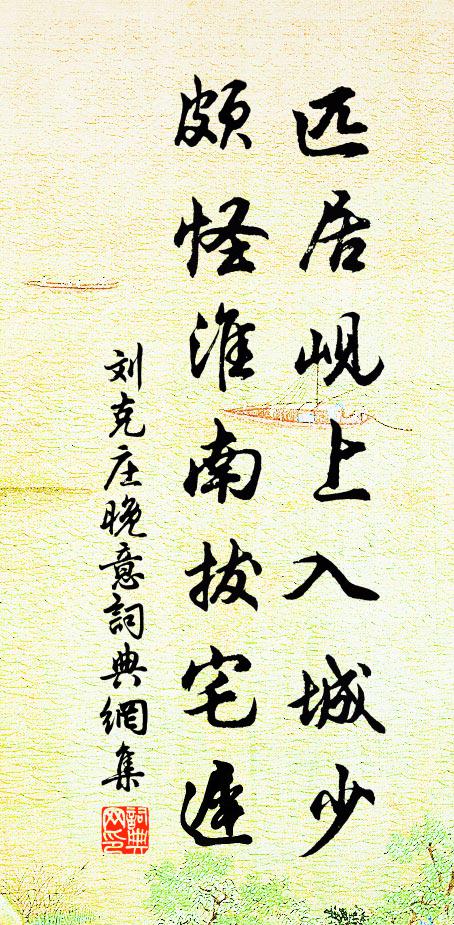 匹居岘上入城少
颇怪淮南拔宅遲
刘克庄晚意詞典網集
詞典网印